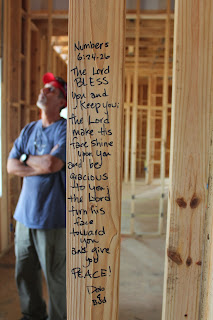 Numbers
6:24-26
The Lord
BLESS
you and
Keep you;
the Lord
make His
face shine
upon you
and be
gracious
to you;
the Lord
turn his
face
toward
you
and give
you
PEACE!